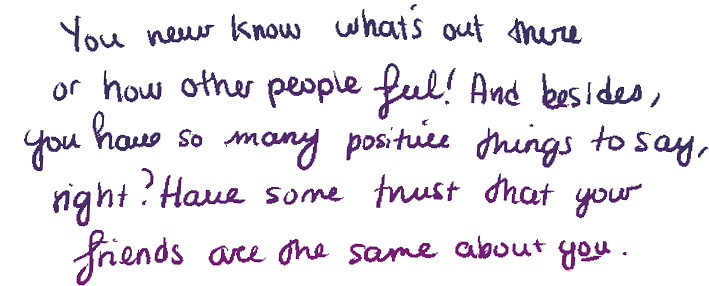 You never know what's out there
or how other people feel! And besides,
you have so many positive things to say,
right? Have some trust that your
friends are the same about you.